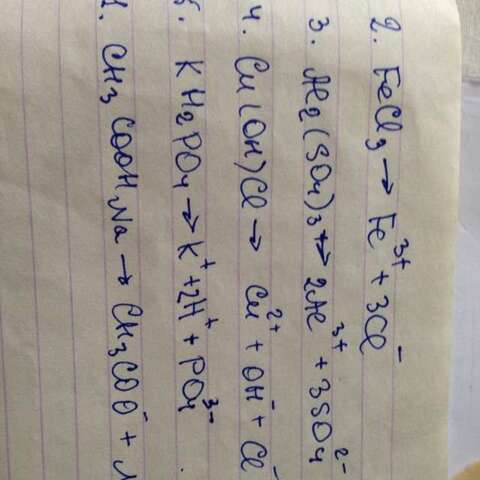 2. FeCl₃ → Fe³⁺ + 3Cl⁻
3. Al₂(SO₄)₃ → 2Al³⁺ + 3SO₄²⁻
4. Cu(OH)Cl → Cu²⁺ + OH⁻ + Cl⁻
KH₂PO₄ → K⁺ + 2H⁺ + PO₄³⁻.
1. CH₃COOHNa → CH₃COO⁻ +